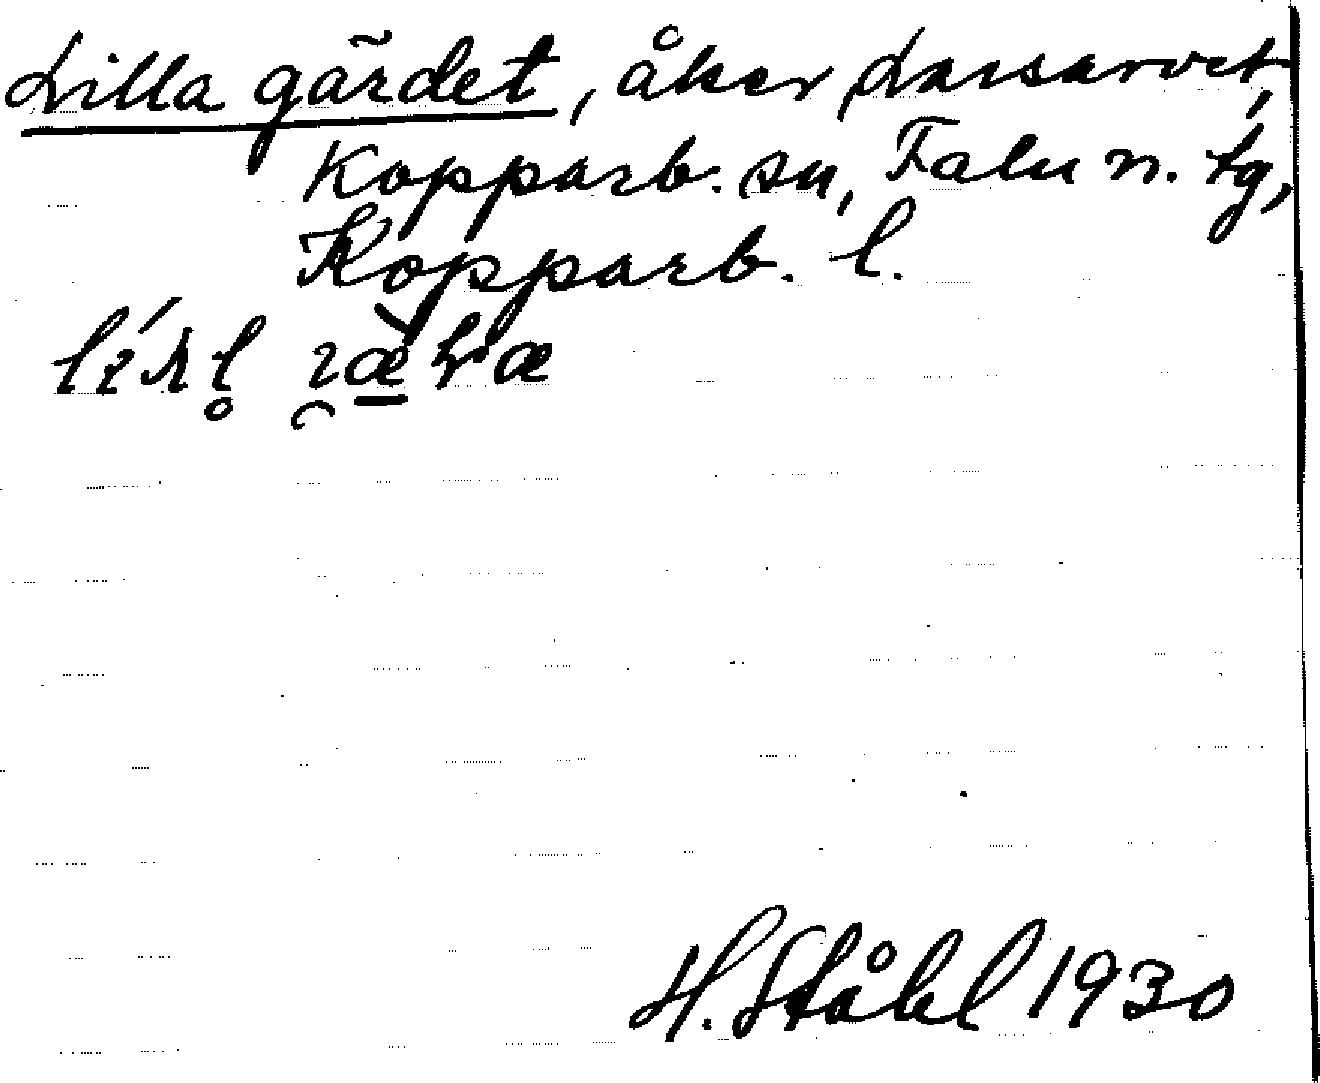 Lilla gärdet, åker, Larsarvet,
Kopparb. sn, Falu n. tg,
Kopparb. l.
H. Ståhl 1930